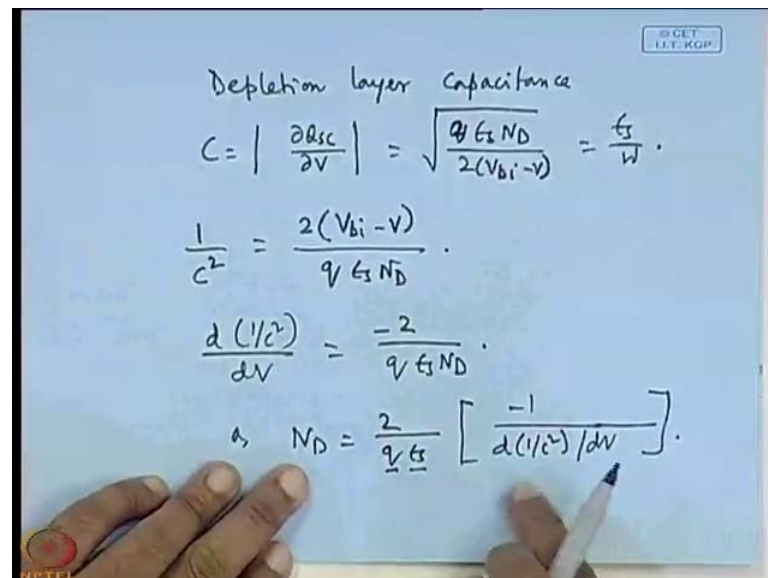 © CET
I.I.T. KGP
Depletion layer capacitance
C = | ∂Qsc / ∂V | = √( q εs ND / 2(Vbi - V) ) = εs / W .
1 / C² = 2(Vbi - V) / q εs ND .
d (1/c²) / dV = -2 / q εs ND .
a, ND = 2 / q εs [ -1 / d(1/c²)/dV ] .
NPTEL